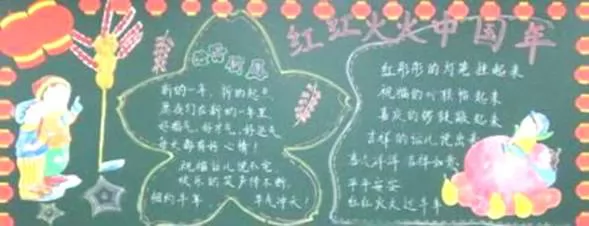 红红火火中国年
新的一年，新的起点
愿我们在新的一年里
好福气，好才气，好运气
每天都有好心情！
祝福话儿说不完，
欢乐的笑声传不断，
相约牛年，牛气冲天！
红彤彤的灯笼挂起来
祝福的
喜庆的锣鼓敲起来
吉祥的话儿说出来
喜气洋洋 吉祥如意
平平安安
红红火火过牛年